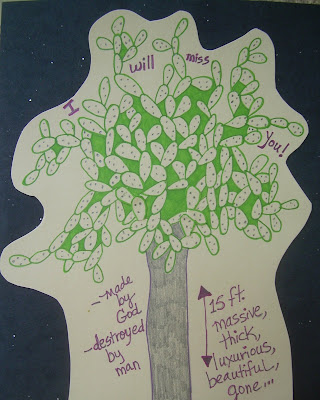 I will miss you!
--made
by
God
--destroyed
by
man
15 ft.
massive,
thick,
luxurious,
beautiful,
gone...